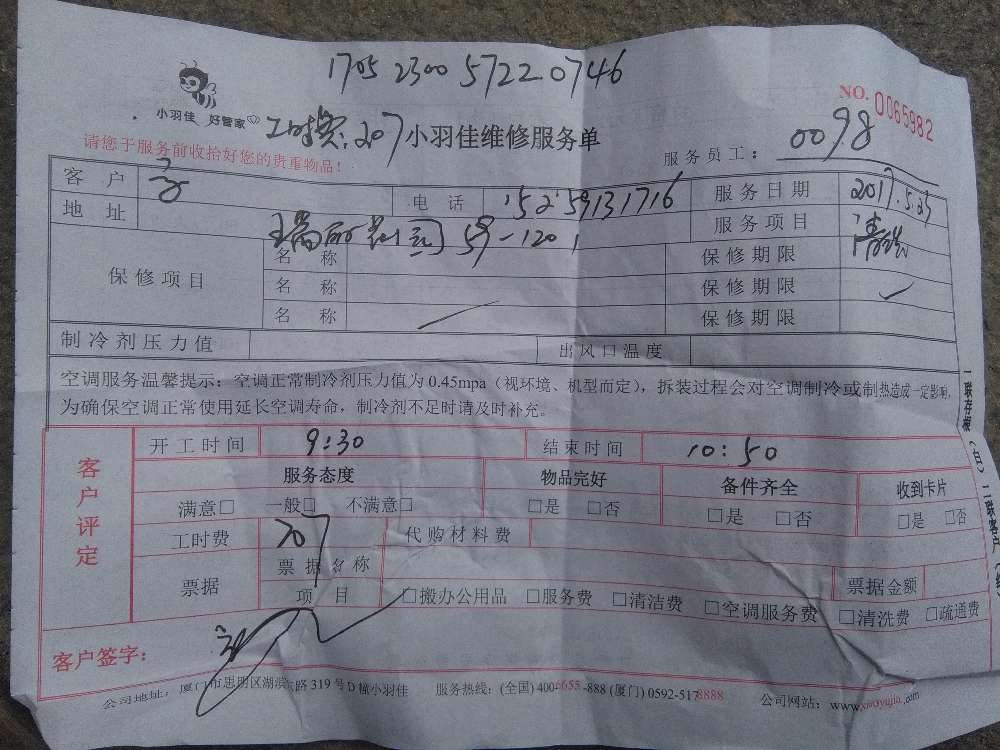 1705 2300 5722 0746
小羽佳 好管家
工时费:207
小羽佳维修服务单
NO. 0065982
请您于服务前收拾好您的贵重物品!
服务员工: 0098
客 户 电 话 15259131716 服务日期 2017.5.25
地 址 59-1201 服务项目
保修项目 名 称 保修期限
名 称 保修期限
名 称 保修期限
制冷剂压力值 出风口温度
空调服务温馨提示:空调正常制冷剂压力值为 0.45mpa(视环境、机型而定),拆装过程会对空调制冷或制热造成一定影响,
为确保空调正常使用延长空调寿命,制冷剂不足时请及时补充。
一联存根(白)二联客户
客户评定
开工时间 9:30 结束时间 10:50
服务态度 物品完好 备件齐全 收到卡片
满意□ 一般□ 不满意□ □是 □否 □是 □否 □是 □否
工时费 207 代购材料费
票据 票据名称 票据金额
项 目 □搬办公用品 □服务费 □清洁费 □空调服务费 □清洗费 □疏通费
客户签字:
公司地址:厦门市思明区湖滨 路 319 号D幢小羽佳 服务热线:(全国) 400-6655-888 (厦门) 0592-5178888 公司网站:www.xiaoyujia.com